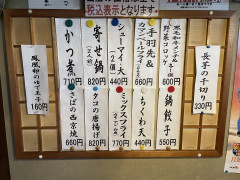 税込表示となります。
長芋の千切り
330円
黒毛和牛メンチ&
野菜コロッケ
660円
鍋餃子
550円
手羽先&
660円
ちくわ天
440円
シューマイ 大
(二個)
440円
ミックスフライ
770円
寄せ鍋
(一人前)
820円
タコの唐揚げ
820円
かつ煮
710円
さばの西京焼
660円
鳳凰卵のゆで玉子
160円